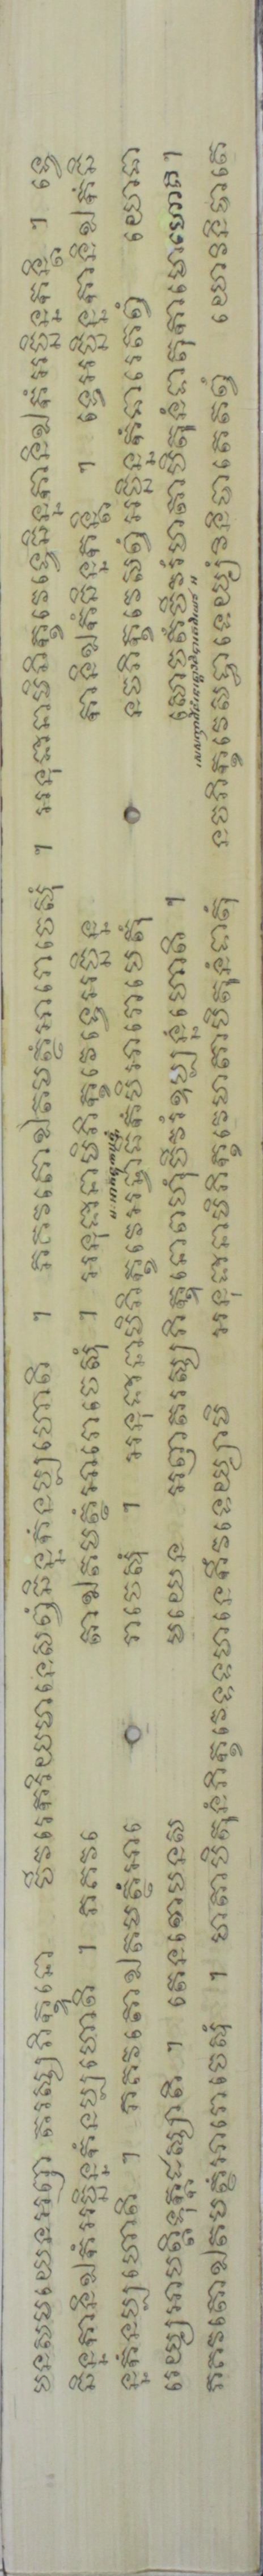 បនសមយេនអញ្ញតរស្សភិក្ខុនោ ចីវរេករិយមានេសព្ពំឆិន្នកំនប្បហោតិ ។ ភគវតោឯតមត្ថំអារោចេសុំ ។ អនុជានាមិភិក្ខវេទ្វេឆិន្នកានិឯកំអច្ឆិន្នកន្តិ ។ ទ្វេ
ឆិន្នកានិឯកំអច្ឆិន្នកំនប្បហោតិ ។ ភគវ តោឯតមត្ថំអារោចេសុំ ។ អនុជានាមិភិក្ខវេទ្វេអច្ឆិន្ន កានិឯកំឆិន្នកន្តិ ។ ទ្វេអច្ឆិន្នកានិឯកំឆិ
ន្នកំនប្បហោតិ ។ ភគវតោឯតមត្ថំអារោ រោចេសុំ ។ អនុជានាមិភិក្ខវេអន្វាធិកំបិអារោបេតុំ នចភិក្ខវេសព្ពំអច្ឆិន្នកំធារេតព្ពំ យោធា
រេយ្យអាបត្តិទុក្កដស្សាតិ ។ តេនខោបនស មយេន អញ្ញតរស្សភិក្ខុនោពហុំចីវរំឧប្បន្នំហោតិ ។ សោចតំចីវរំមាតាបិតុនំទាតុកាមោហោតិ ។
ភគវតោឯតមត្ថំអារោចេសុំ ។ មាតាបិតុនំភិក្ខវេទទមានេកិំវទេយ្យាមិ អនុជានាមិភិក្ខវេមាតាបិតុនំទាតុំ នចភិក្ខវេសទ្ធាទេយ្យំវិនិបាតេតព្ពំ យោវិនិបាតេ